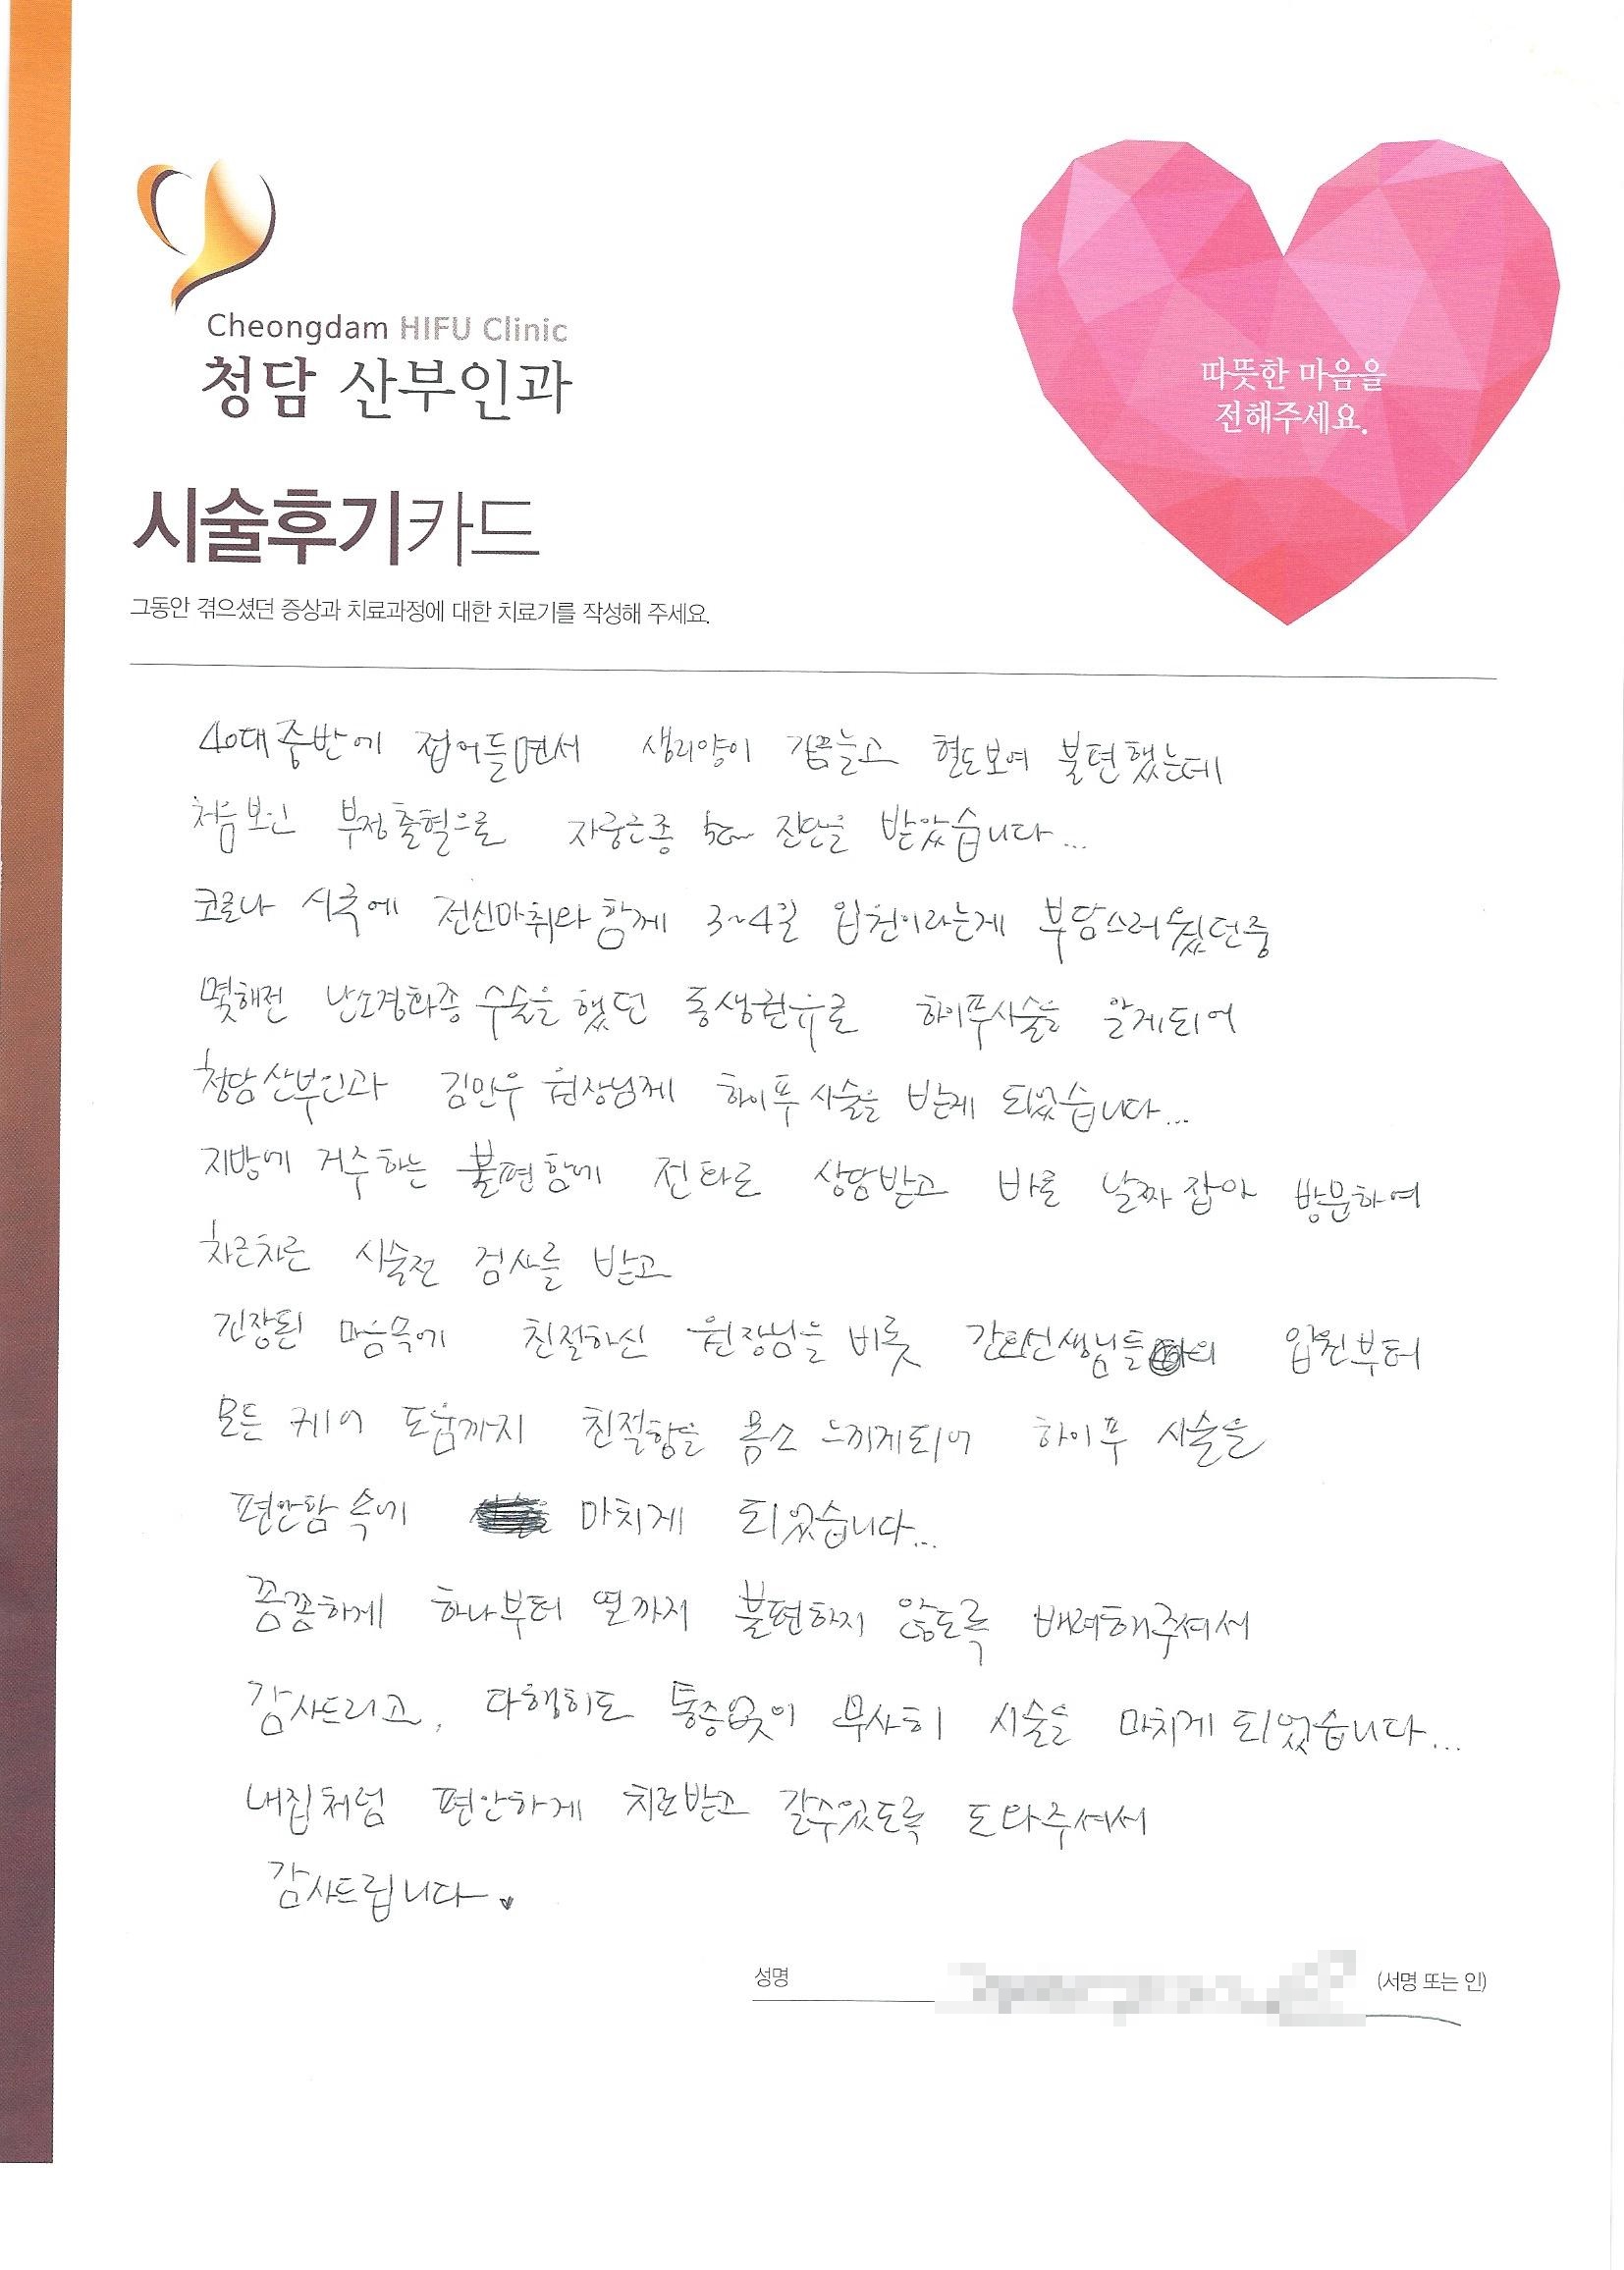 Cheongdam HIFU Clinic
청담 산부인과
따뜻한 마음을
전해주세요.
시술후기카드
그동안 겪으셨던 증상과 치료과정에 대한 치료기를 작성해 주세요.
40대 중반에 접어들면서 생리양이 감끔늘고 혈도보여 불편했는데
처음보인 부정출혈으로 자궁근종 진단을 받았습니다...
코로나 시국에 전신마취와 함께 3~4일 입원이라는게 부담스러웠던중
몇해전 난소경화종 수술을 했던 동생권유로 하이푸시술을 알게되어
청담산부인과 김민우 원장님께 하이푸 시술을 받게 되었습니다...
지방에 거주하는 불편함에 전화로 상담받고 바로 날짜잡아 방문하여
차근차근 시술전 검사를 받고
긴장된 마음속에 친절하신 원장님을 비롯 간호선생님들의 입원부터
모든 케어 도움까지 친절함을 몸소 느끼게되어 하이푸 시술을
편안함 속에 마치게 되었습니다...
꼼꼼하게 하나부터 열까지 불편하지 않도록 배려해주셔서
감사드리고, 다행히도 통증없이 무사히 시술을 마치게 되었습니다...
내집처럼 편안하게 치료받고 갈수있도록 도와주셔서
감사드립니다.♥
성명 (서명 또는 인)